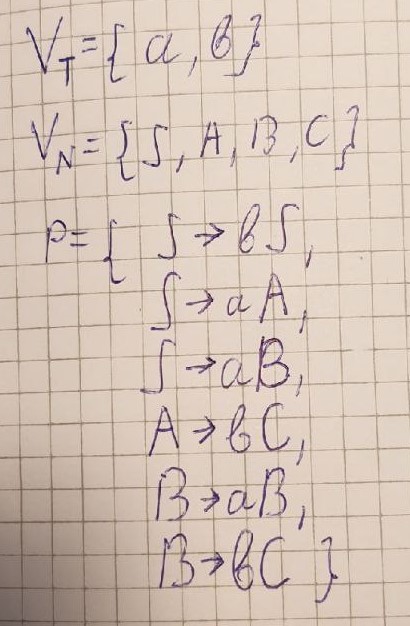 V_T = { a, b }
V_N = { S, A, B, C }
P = { S → bS,
S → aA,
S → aB,
A → bC,
B → aB,
B → bC }